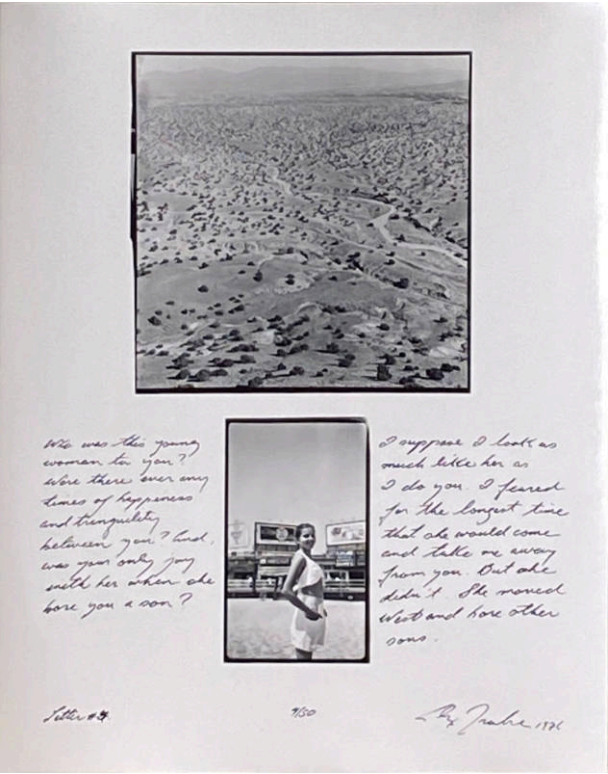 Who was this young
woman to you?
Were there ever any
times of happeness
and tranquility
between you? And,
was your only joy
with her when she
bore you a son?
I suppose I look as
much like her as
I do you. I feared
for the longest time
that she would come
and take me away
from you. But she
didn't. She moved
West and bore other
sons.
Letter #
/50
Traube 1976